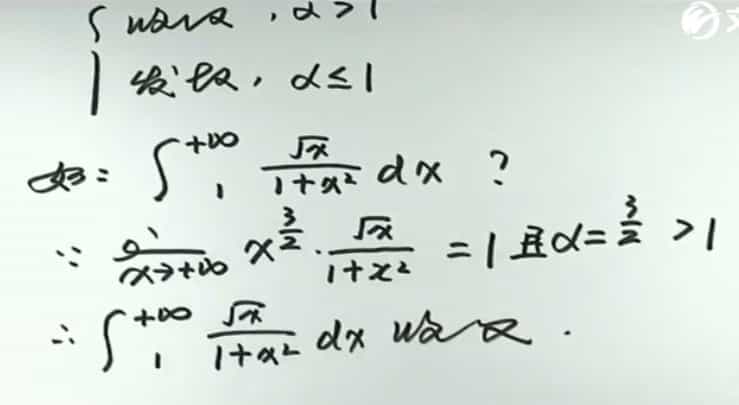 { 收敛, α>1
发散, α≤1
如: ∫₁^{+∞} √x/(1+x²) dx ?
∵ lim_{x→+∞} x^{3/2}·√x/(1+x²) = 1 且 α=3/2 >1
∴ ∫₁^{+∞} √x/(1+x²) dx 收敛.